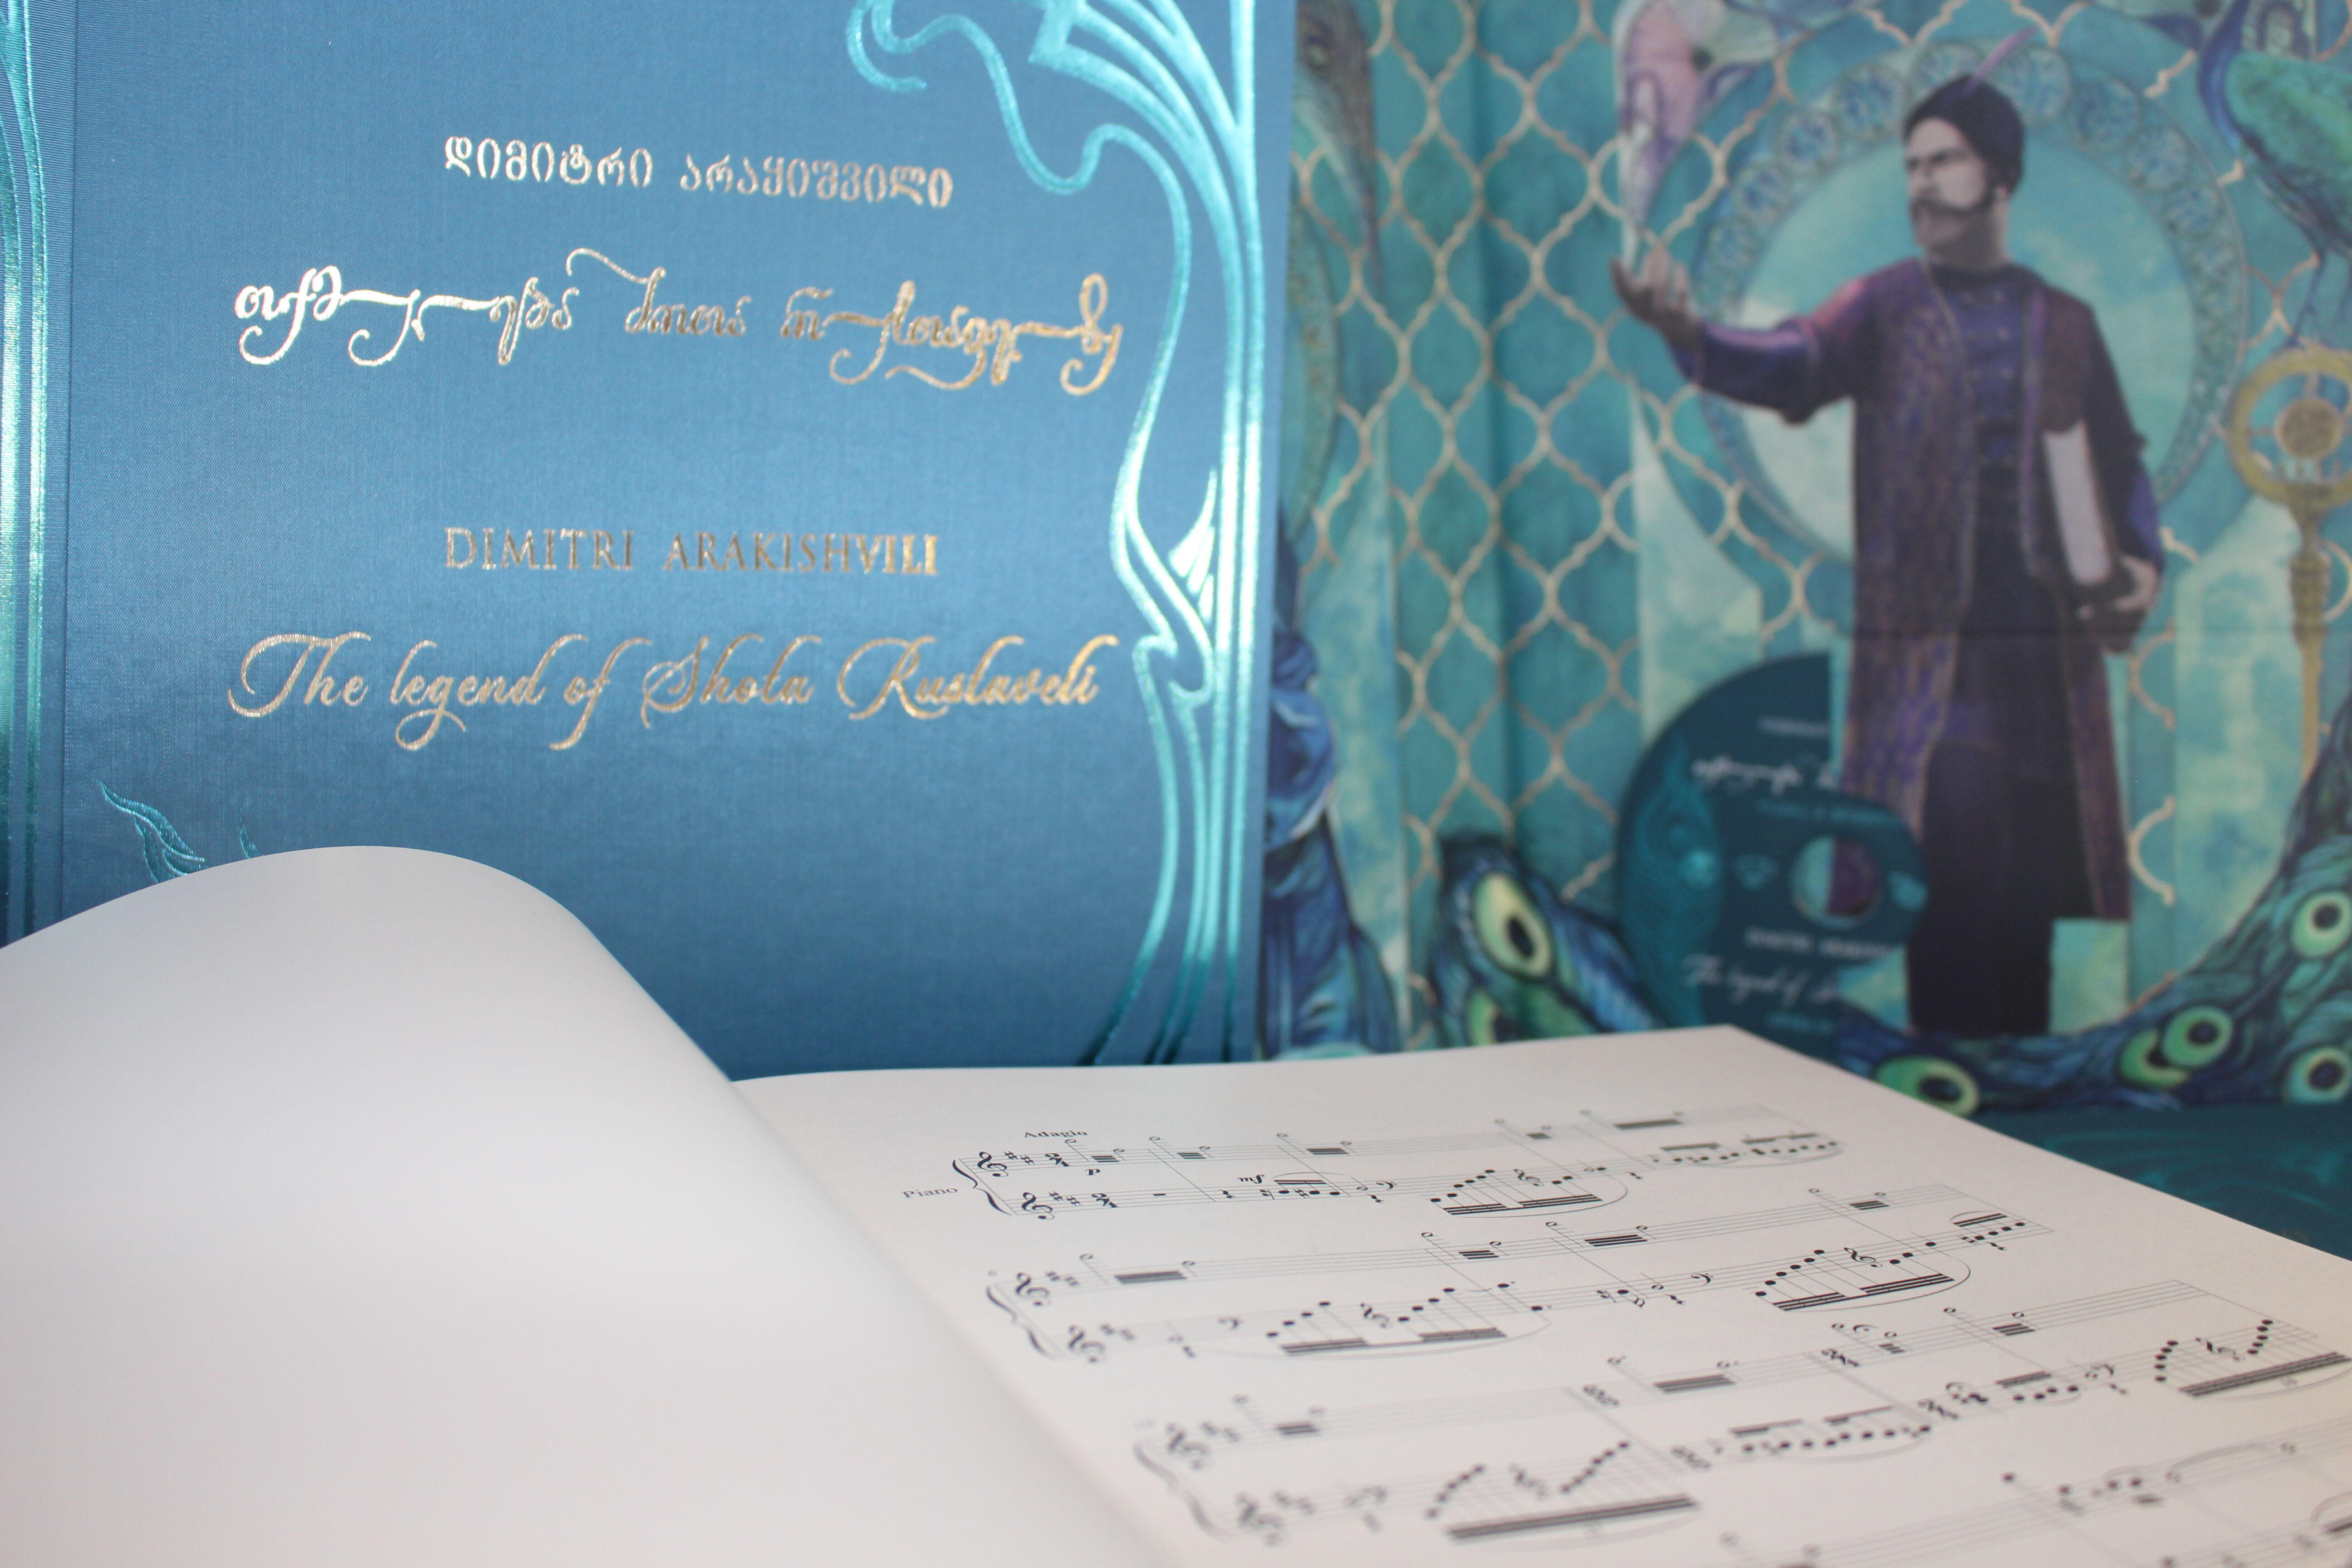 დიმიტრი არაყიშვილი
თქმულება შოთა რუსთაველზე
DIMITRI ARAKISHVILI
The legend of Shota Rustaveli
The legend of
Adagio
Piano
p
mf